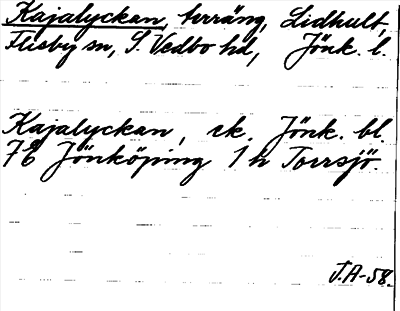 Kajalyckan, terräng, Lidhult,
Flisby sn, S. Vedbo hd, Jönk. l.
Kajalyckan, ek. Jönk. bl.
76 Jönköping 1 h Torrsjö.
J.A-58.